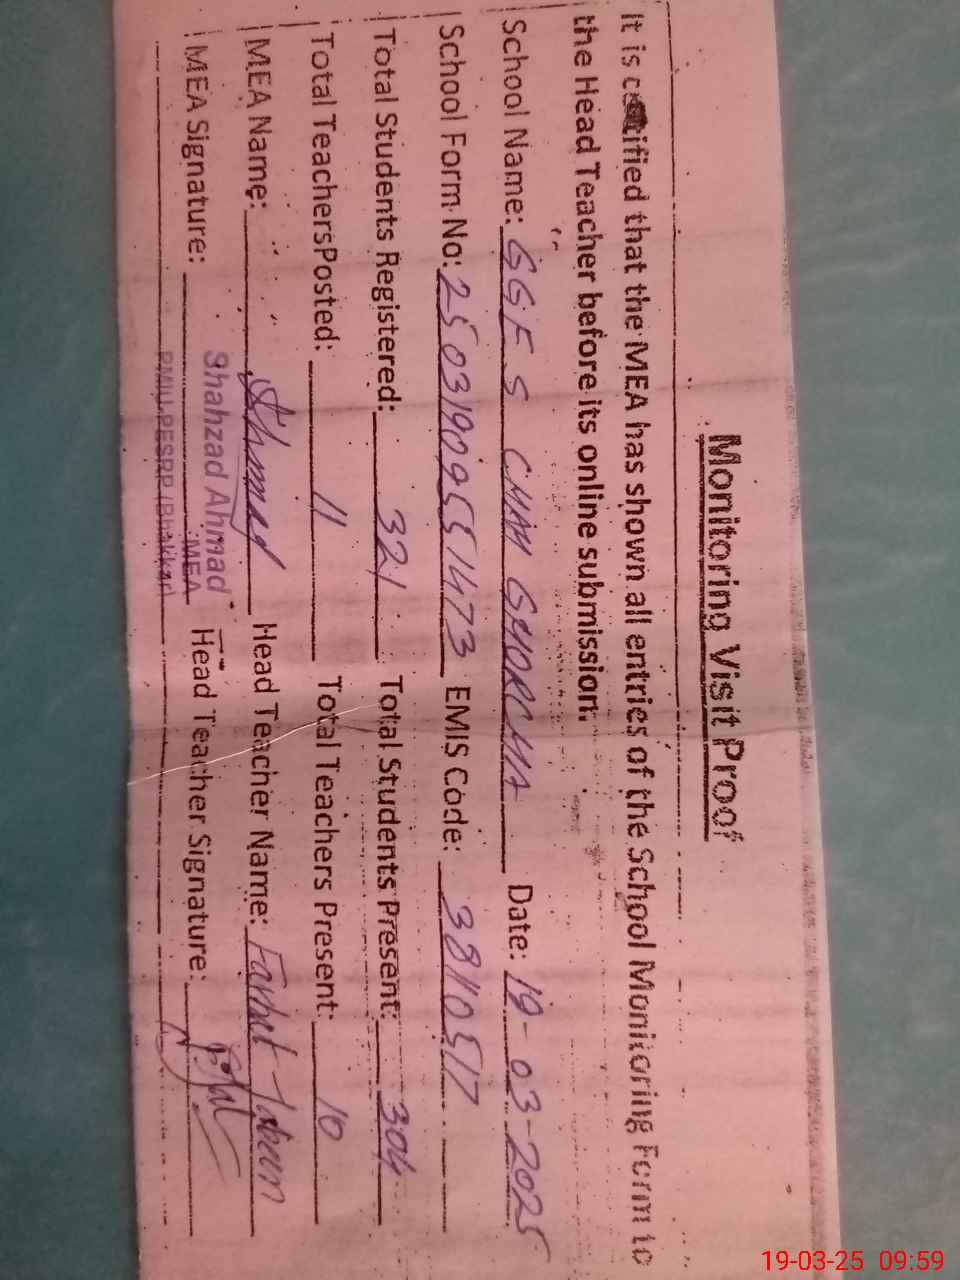 Monitoring Visit Proof
It is certified that the MEA has shown all entries of the School Monitoring Form to
the Head Teacher before its online submission.
School Name: GGES CHAH GHORCHA Date: 19-03-2025
School Form No: 25031909551473 EMIS Code: 38110517
Total Students Registered: 321 Total Students Present: 304
Total TeachersPosted: 11 Total Teachers Present: 10
MEA Name: Ahmad Head Teacher Name: Farhat
MEA Signature: Head Teacher Signature:
Shahzad Ahmad
MEA
PMIU-PESRP (Bhakkar)
19-03-25 09:59